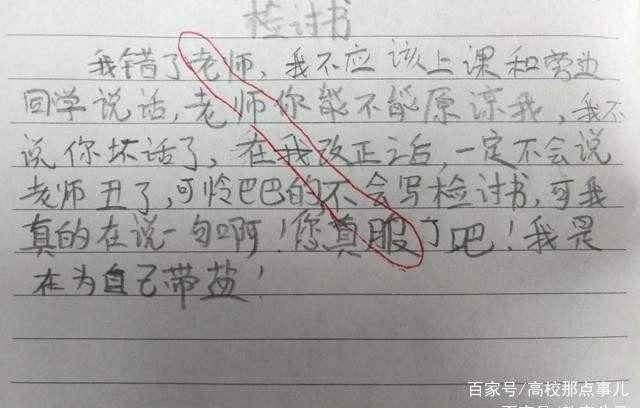 检讨书
我错了老师，我不应该上课和旁边
同学说话，老师你能不能原谅我，我不
说你坏话了，在我改正之后，一定不会说
老师丑了，可怜巴巴的不会写检讨书，可我
真的在说一句啊！您真服了吧！我是
在为自己带盐！
百家号/高校那点事儿